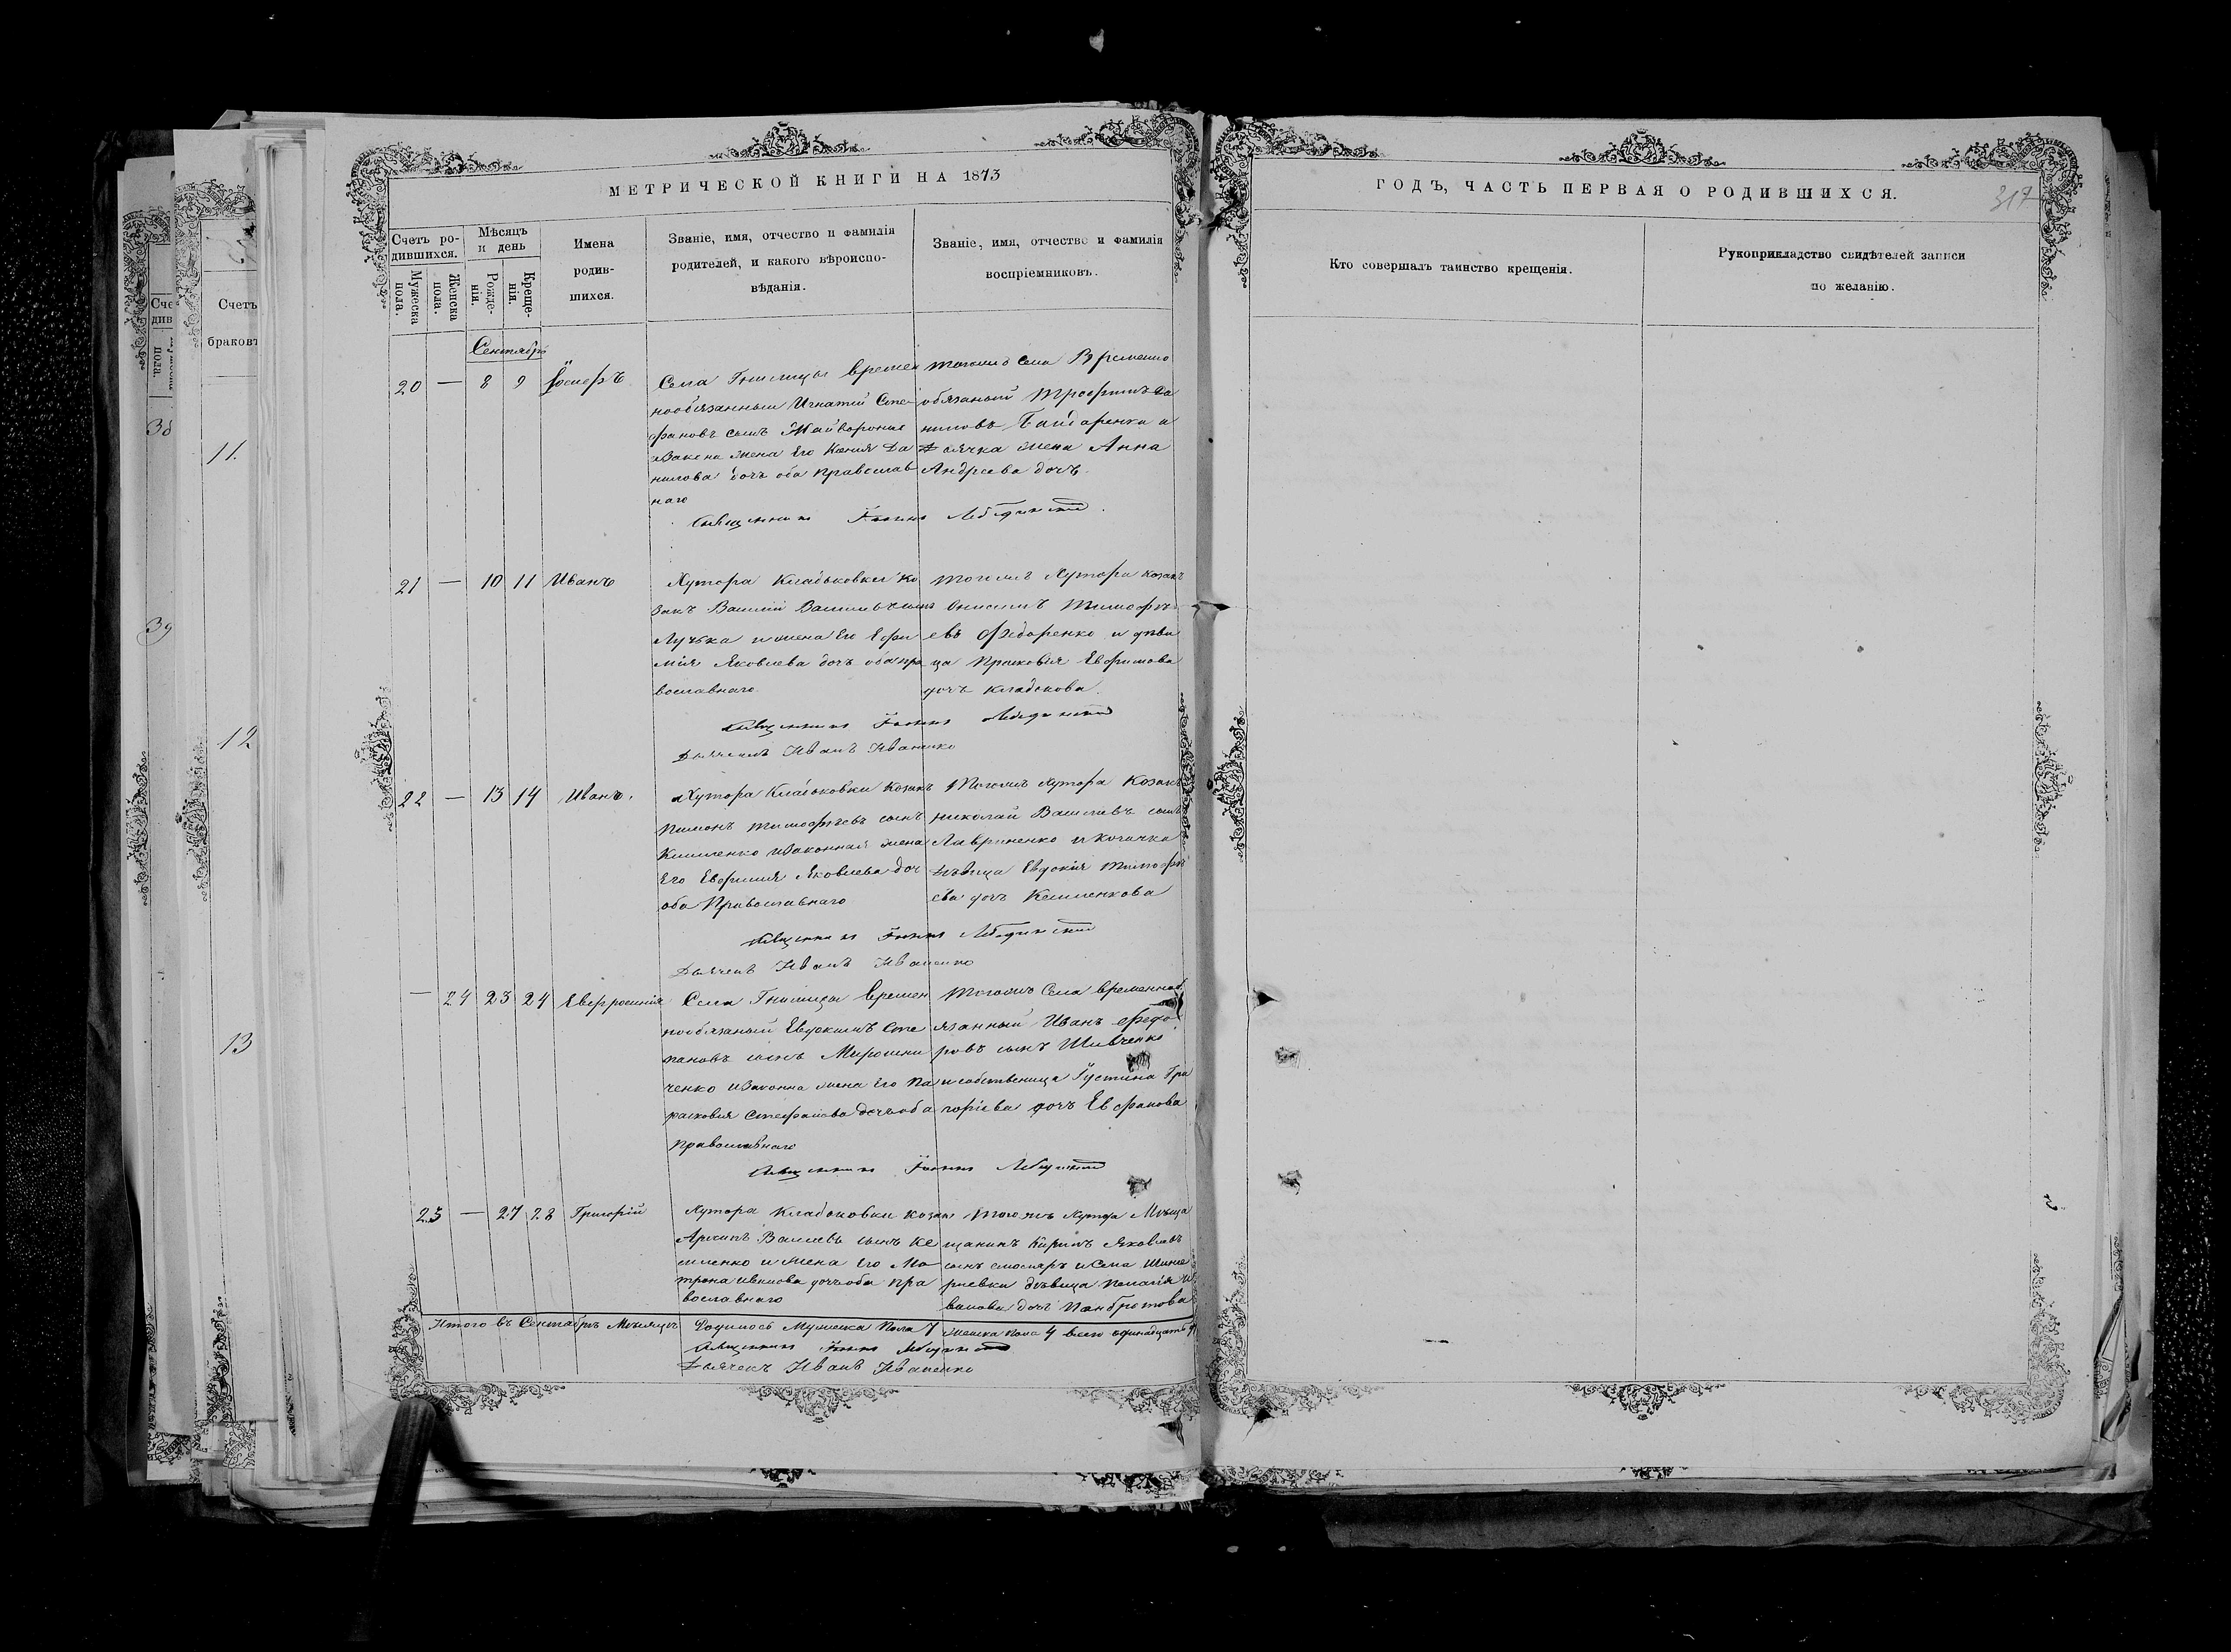 МЕТРИЧЕСКОЙ КНИГИ НА 1873
ГОДЪ, ЧАСТЬ ПЕРВАЯ О РОДИВШИХСЯ.
317
Счетъ ро-
дившихся.
Мужеска
пола.
Женска
пола.
Мѣсяцъ
и день
Рожде-
нія.
Креще-
нія.
Имена
родив-
шихся.
Званіе, имя, отчество и фамилія
родителей, и какого вѣроиспо-
вѣданія.
Званіе, имя, отчество и фамилія
воспріемниковъ.
Кто совершалъ таинство крещенія.
Рукоприкладство свидѣтелей записи
по желанію.
Счетъ
браковъ
11.
12
13
38
39
Сентябрь
20 — 8 9
Села Гнилицы времен
нообязанный Игнатій Сте-
фановъ сынъ
жена Его Ксенія Да
нилова дочь оба православ
наго
тогожъ Села Временно
обязаный Трофимъ Да
ниловъ Бондаренко и
Дьячка жена Анна
Андреева дочь.
Священникъ Іоаннъ Лебединскій
21 — 10 11 Иванъ
Хутора Кладьковки Ко
закъ Василій Васильевъ сынъ
Лучка и жена Его Ефи
мія Яковлева дочь оба пра
вославнаго.
тогожъ Хутора козакъ
Онисимъ Тимофѣ
евъ Федоренко и дѣви
ца Прасковія Евфимова
дочь Кладькова.
Священникъ Іоаннъ Лебединскій
Дьячекъ Иванъ Иваненко
22 — 13 14 Иванъ.
Хутора Кладьковки Козакъ
Пименъ Тимофѣевъ сынъ
изаконная жена
Его Евфимія Яковлева доч
оба Православнаго
Тогожъ Хутора Козакъ
Николай Васильевъ сынъ
Лавриненко и козачка
Дѣвица Евдокія Тимофѣ
ева дочь
Священникъ Іоаннъ Лебединскій
Дьячекъ Иванъ Иваненко
— 24 23 24 Евфросинія
Села Гнилицы времен
нообязаный Евдокимъ Сте
пановъ сынъ Мирошни
ченко изаконна жена Его Па
расковія Стефанова дочь оба
православнаго
Тогожъ Села временноб
язанный Иванъ Федо
ровъ сынъ Шевченко
и собственица Густина Гри
горіева дочь
Священникъ Іоаннъ Лебединскій
23 — 27 28 Григорій
Хутора Кладьковки козакъ
Архипъ Василевъ сынъ Ке
шленко и жена Его Ма
трона Ивнова дочь оба пра
вославнаго
Того жъ Хутора Мѣща
щанинъ Кирилъ Яковлевъ
сынъ столяръ и Села
дѣвица Пелагія И
ванова дочь
Итого въ Сентябрѣ Мѣсяцѣ Родилось Мужеска Пола 7 женска пола 4 всего одинадцать
Священникъ Іоаннъ Лебединскій
Дьячекъ Иванъ Иваненко